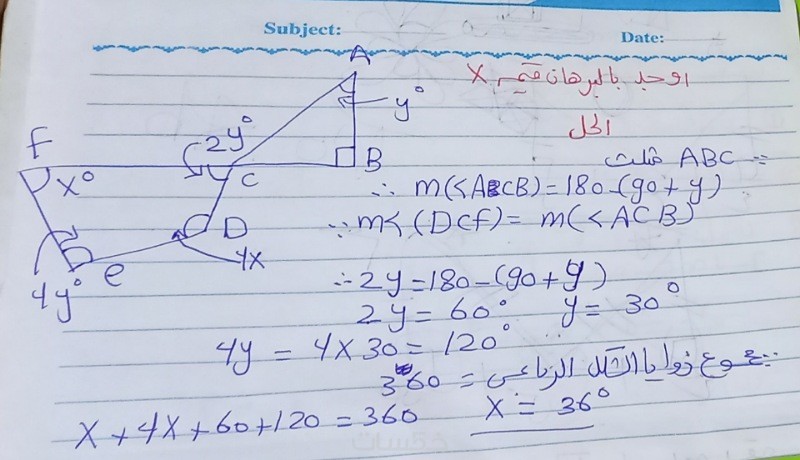 Subject:
Date:
اوجد بالبرهان قيمة X
الحل
A
y°
2y°
F
X°
C
B
D
4X
e
4y°
∵ ABC مثلث
∴ m(<ACB) = 180 - (90 + y)
∵ m<(DCF) = m(<ACB)
∴ 2y = 180 - (90 + y)
2y = 60° y = 30°
4y = 4 X 30 = 120°
∵ مجموع زوايا الشكل الرباعى = 360
X + 4X + 60 + 120 = 360 X = 36°